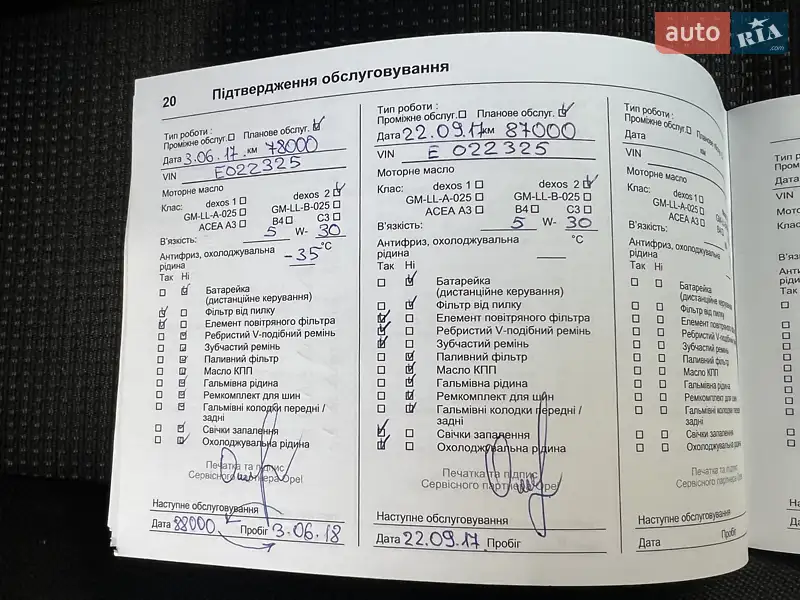 auto RIA .com
20 Підтвердження обслуговування
Тип роботи :
Проміжне обслуг. Планове обслуг.
Дата 3.06.17. км 78000
VIN E022325
Моторне масло
Клас: dexos 1 dexos 2
GM-LL-A-025 GM-LL-B-025
ACEA A3 B4 C3
В'язкість: 5 W- 30
Антифриз, охолоджувальна
рідина -35 °C
Так Ні
Батарейка
(дистанційне керування)
Фільтр від пилку
Елемент повітряного фільтра
Ребристий V-подібний ремінь
Зубчастий ремінь
Паливний фільтр
Масло КПП
Гальмівна рідина
Ремкомплект для шин
Гальмівні колодки передні /
задні
Свічки запалення
Охолоджувальна рідина
Печатка та підпис
Сервісного партнера Opel
Наступне обслуговування
Дата 88000 Пробіг 3.06.18
Тип роботи :
Проміжне обслуг. Планове обслуг.
Дата 22.09.17 км 87000
VIN E 022325
Моторне масло
Клас: dexos 1 dexos 2
GM-LL-A-025 GM-LL-B-025
ACEA A3 B4 C3
В'язкість: 5 W- 30
Антифриз, охолоджувальна °C
рідина
Так Ні
Батарейка
(дистанційне керування)
Фільтр від пилку
Елемент повітряного фільтра
Ребристий V-подібний ремінь
Зубчастий ремінь
Паливний фільтр
Масло КПП
Гальмівна рідина
Ремкомплект для шин
Гальмівні колодки передні /
задні
Свічки запалення
Охолоджувальна рідина
Печатка та підпис
Сервісного партнера Opel
Наступне обслуговування
Дата 22.09.17. Пробіг
Тип роботи :
Проміжне обслуг. Планове
Дата км
VIN
Моторне масло
Клас: dexos 1
GM-LL-A-025
ACEA A3 B4
В'язкість:
Антифриз, охолоджувальна
рідина
Так Ні
Батарейка
(дистанційне керування
Фільтр від пилку
Елемент повітряного
Ребристий V-подібний
Зубчастий ремінь
Паливний фільтр
Масло КПП
Гальмівна рідина
Ремкомплект для шин
Гальмівні колодки
задні
Свічки запалення
Охолоджувальна
Печатка та підпис
Сервісного партнера
Наступне обслуговування
Дата Пробіг